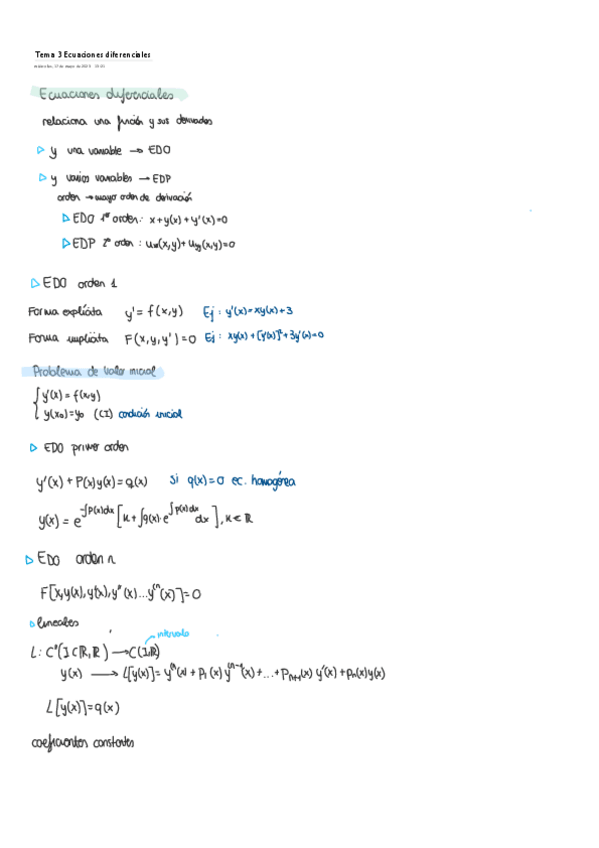 Tema 3 Ecuaciones diferenciales
miércoles, 17 de mayo de 2023
Ecuaciones diferenciales
relaciona una función y sus derivadas
▷ y una variable → EDO
▷ y varias variables → EDP
orden → mayor orden de derivación
▷ EDO 1er orden: x+y(x)+y'(x)=0
▷ EDP 2º orden: uxx(x,y)+uyy(x,y)=0
▷ EDO orden 1
Forma explícita y' = f(x,y) Ej: y'(x)=xy(x)+3
Forma implícita F(x,y,y')=0 Ej: xy(x)+[y'(x)]²+3y'(x)=0
Problema de valor inicial
{ y'(x) = f(x,y)
y(x₀)=y₀ (CI) condición inicial
▷ EDO primer orden
y'(x)+P(x)y(x)=q(x) Si q(x)=0 ec. homogénea
y(x) = e^{-∫P(x)dx} [K+∫q(x)·e^{∫P(x)dx} dx], K∈ℝ
▷ EDO orden n
F[x,y(x),y'(x),y''(x)...y^(n(x)]=0
▷ lineales
intervalo
L: Cⁿ(I⊂ℝ,ℝ) → C(I,ℝ)
y(x) → L[y(x)]= y^(n(x)+p₁(x)y^(n-1(x)+...+pₙ₊₁(x)y'(x)+pₙ(x)y(x)
L[y(x)]=q(x)
coeficientes constantes